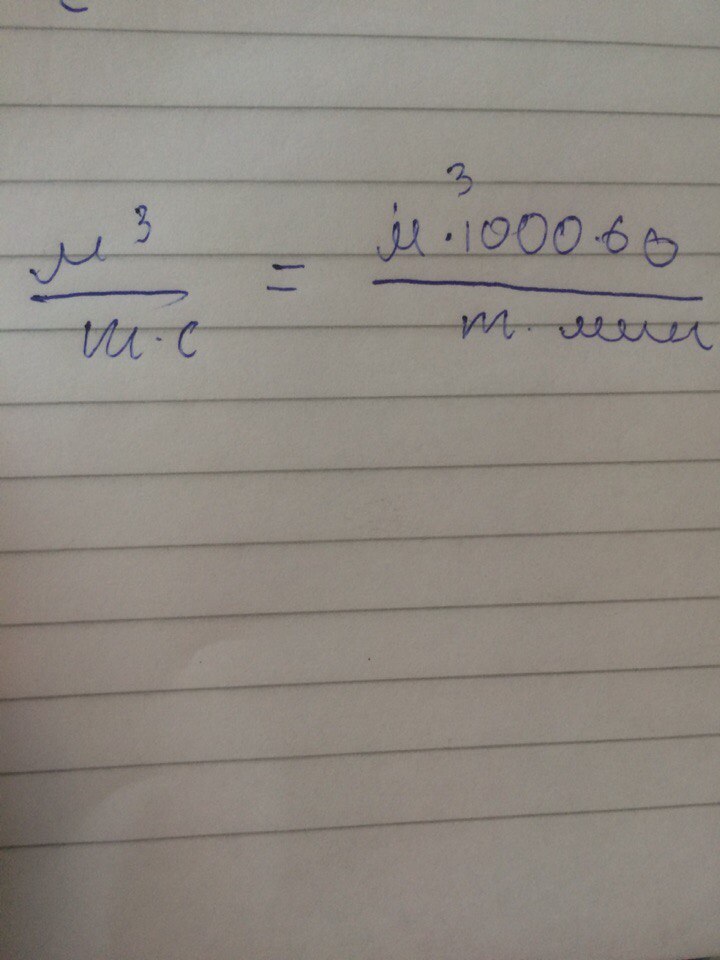 м³ / т·с = м³·1000·60 / т·мин